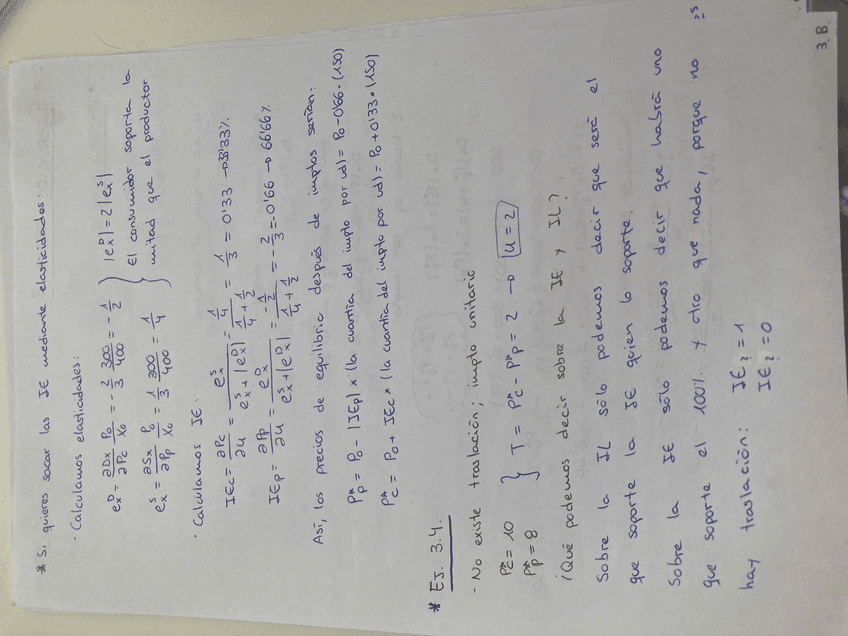 * Si quieres sacar las IE mediante elasticidades:
· Calculamos elasticidades:
e_x^D = ∂Dx/∂Pc · P0/X0 = -2/3 · 300/400 = -1/2 } |e_x^D| = 2|e_x^S|
e_x^S = ∂Sx/∂Pp · P0/X0 = 1/3 · 300/400 = 1/4 } El consumidor soporta la
mitad que el productor
· Calculamos IE:
IEc = ∂Pc/∂u = e_x^S/(e_x^S + |e_x^D|) = (1/4)/(1/4 + 1/2) = 1/3 = 0'33 → 33'33%
IEp = ∂Pp/∂u = e_x^D/(e_x^S + |e_x^D|) = (-1/2)/(1/4 + 1/2) = -2/3 = -0'66 → 66'66%
Así, los precios de equilibrio después de imptos serían:
P*p = P0 - |IEp| x (la cuantía del impto por ud) = P0 - 0'66 · (150)
P*c = P0 + IEc x (la cuantía del impto por ud) = P0 + 0'33 · (150)
* EJ. 3.4.
- No existe traslación; impto unitario
P*c = 10
P*p = 8 } T = P*c - P*p = 2 → u = 2
¿Qué podemos decir sobre la IE y IL?
Sobre la IL sólo podemos decir que será el
que soporte la IE quien lo soporte.
Sobre la IE sólo podemos decir que habrá uno
que soporte el 100% y otro que nada, porque no
hay traslación: IE? = 1
IE? = 0
3.B.